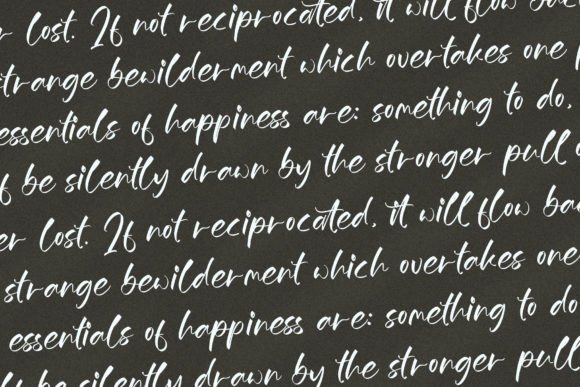 lost. If not reciprocated, it will flow
strange bewilderment which overtakes one
essentials of happiness are: something to do,
be silently drawn by the stronger pull
lost. If not reciprocated, it will flow
strange bewilderment which overtakes one
essentials of happiness are: something to do
be silently drawn by the stronger pull